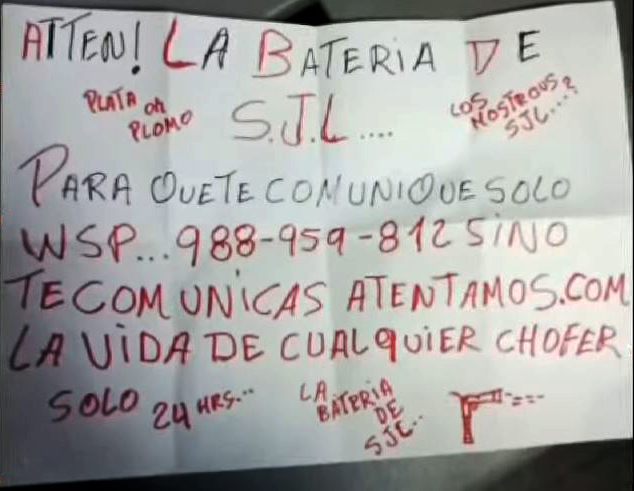 ATTEN! LA BATERIA DE
PLATA OR
PLOMO
S.J.L....
LOS
MOSTROUS?
SJL....
PARA QUETECOMUNIQUESOLO
WSP...988-959-812 SINO
TECOMUNICAS ATENTAMOS.COM
LA VIDA DE CUALQUIER CHOFER
SOLO 24 HRS...
LA
BATERIA
DE
SJL..